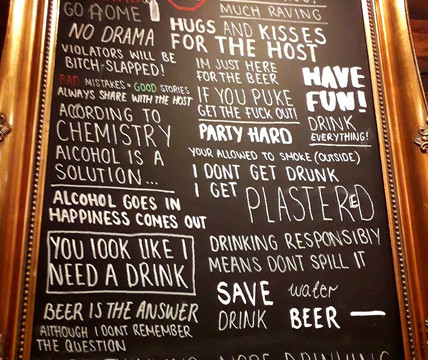 GO HOME
NO DRAMA
VIOLATORS WILL BE
BITCH-SLAPPED!
BAD MISTAKES = GOOD STORIES
ALWAYS SHARE WITH THE HOST
ACCORDING TO
CHEMISTRY
ALCOHOL IS A
SOLUTION...
ALCOHOL GOES IN
HAPPINESS COMES OUT
YOU LOOK LIKE I
NEED A DRINK
BEER IS THE ANSWER
ALTHOUGH I DONT REMEMBER
THE QUESTION
MUCH RAVING
HUGS AND KISSES
FOR THE HOST
IM JUST HERE
FOR THE BEER
IF YOU PUKE
GET THE FUCK OUT!
HAVE
FUN!
PARTY HARD
DRINK
EVERYTHING!
YOUR ALLOWED TO SMOKE (OUTSIDE)
I DONT GET DRUNK
I GET PLASTERED
DRINKING RESPONSIBLY
MEANS DONT SPILL IT
SAVE water
DRINK BEER
MORE DRINKING